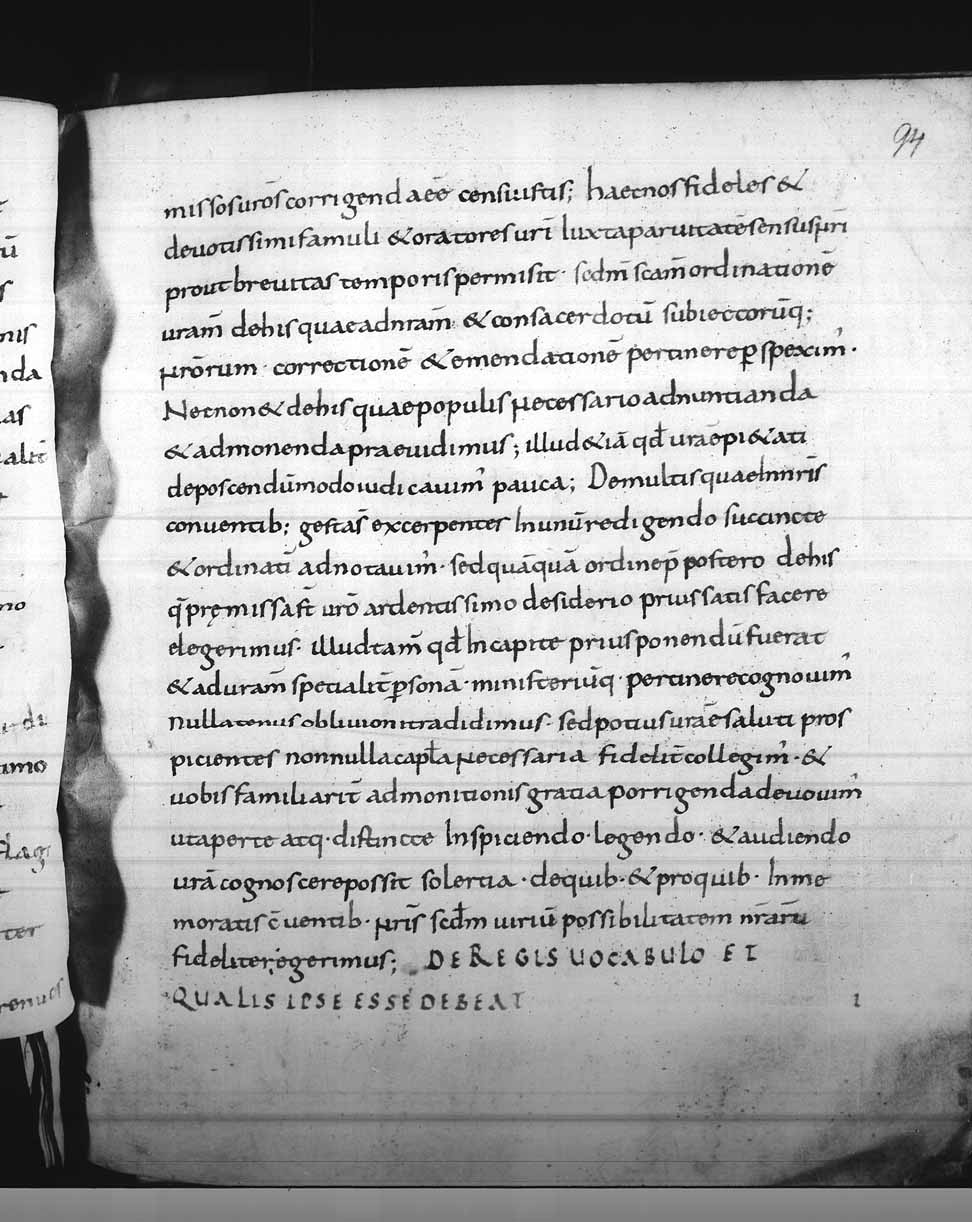 94
missos uros corrigenda eē censuistis; haec nos fideles &
deuotissimi famuli & oratores urī Iuxta paruitatē sensus nri
prout breuitas temporis permisit · scdm̄ scam̄ ordinationē
uram̄ de his quae ad nram̄ & consacerdotū subiectorūq;
nrōrum · correctionē & emendationē pertinere p̱speximʼ ·
Nec non & de his quae populis necessario adnuntianda
& admonenda praeuidimus; illud & iā qđ urae pi&ati
deposcendūmodo iudicauimʼ pauca; De multis quae In nrīs
conuentib; gestas̄ excerpentes In unū redigendo succincte
& ordinatī adnotauimʼ · sed quāquā ordine p̄postero de his
q̄ pręmissa st̄ urō ardentissimo desiderio prius satisfacere
elegerimus · illud tam̄ qđ In capite prius ponendū fuerat
& ad uram̄ specialit̄ p̱sonā · ministeriūq · pertinere cognouimʼ
nullatenus obliuioni tradidimus · sed potius urāe saluti pros
picientes nonnulla capl̄a necessaria fidelit̄ collegimʼ · &
uobis familiarit̄ admonitionis gratia porrigenda deuouimʼ
ut aperte atq · distincte Inspiciendo · legendo · & audiendo
urā cognoscere possit solertia · de quib · & pro quib · In me
moratis c̄uentib · nrīs scđm uiriū possibilitatem nrārū
fideliter egerimus; DE REGIS UOCABULO ET
QUALIS IPSE ESSE DEBEAT I